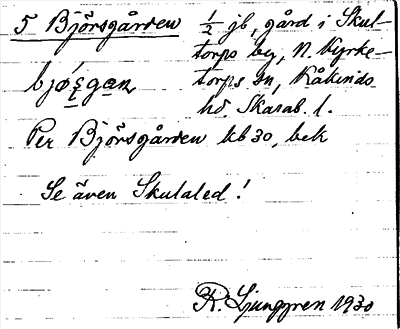 5 Björsgården ½ jb, gård i Skul-
torps by, N. Kyrke-
bjø̀ʂgaɳ torps sn, Kåkinds
hd. Skarab. l.
Per Björsgården kb 30, bek
Se även Skulaled!
R. Ljunggren 1930